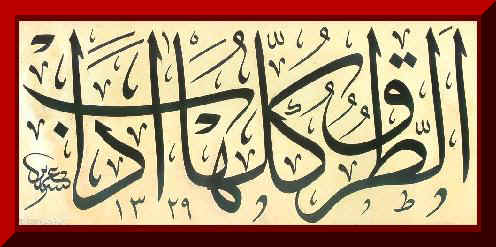 الطُّرُقُ كُلُّهَا آدَابْ
١٣٢٩